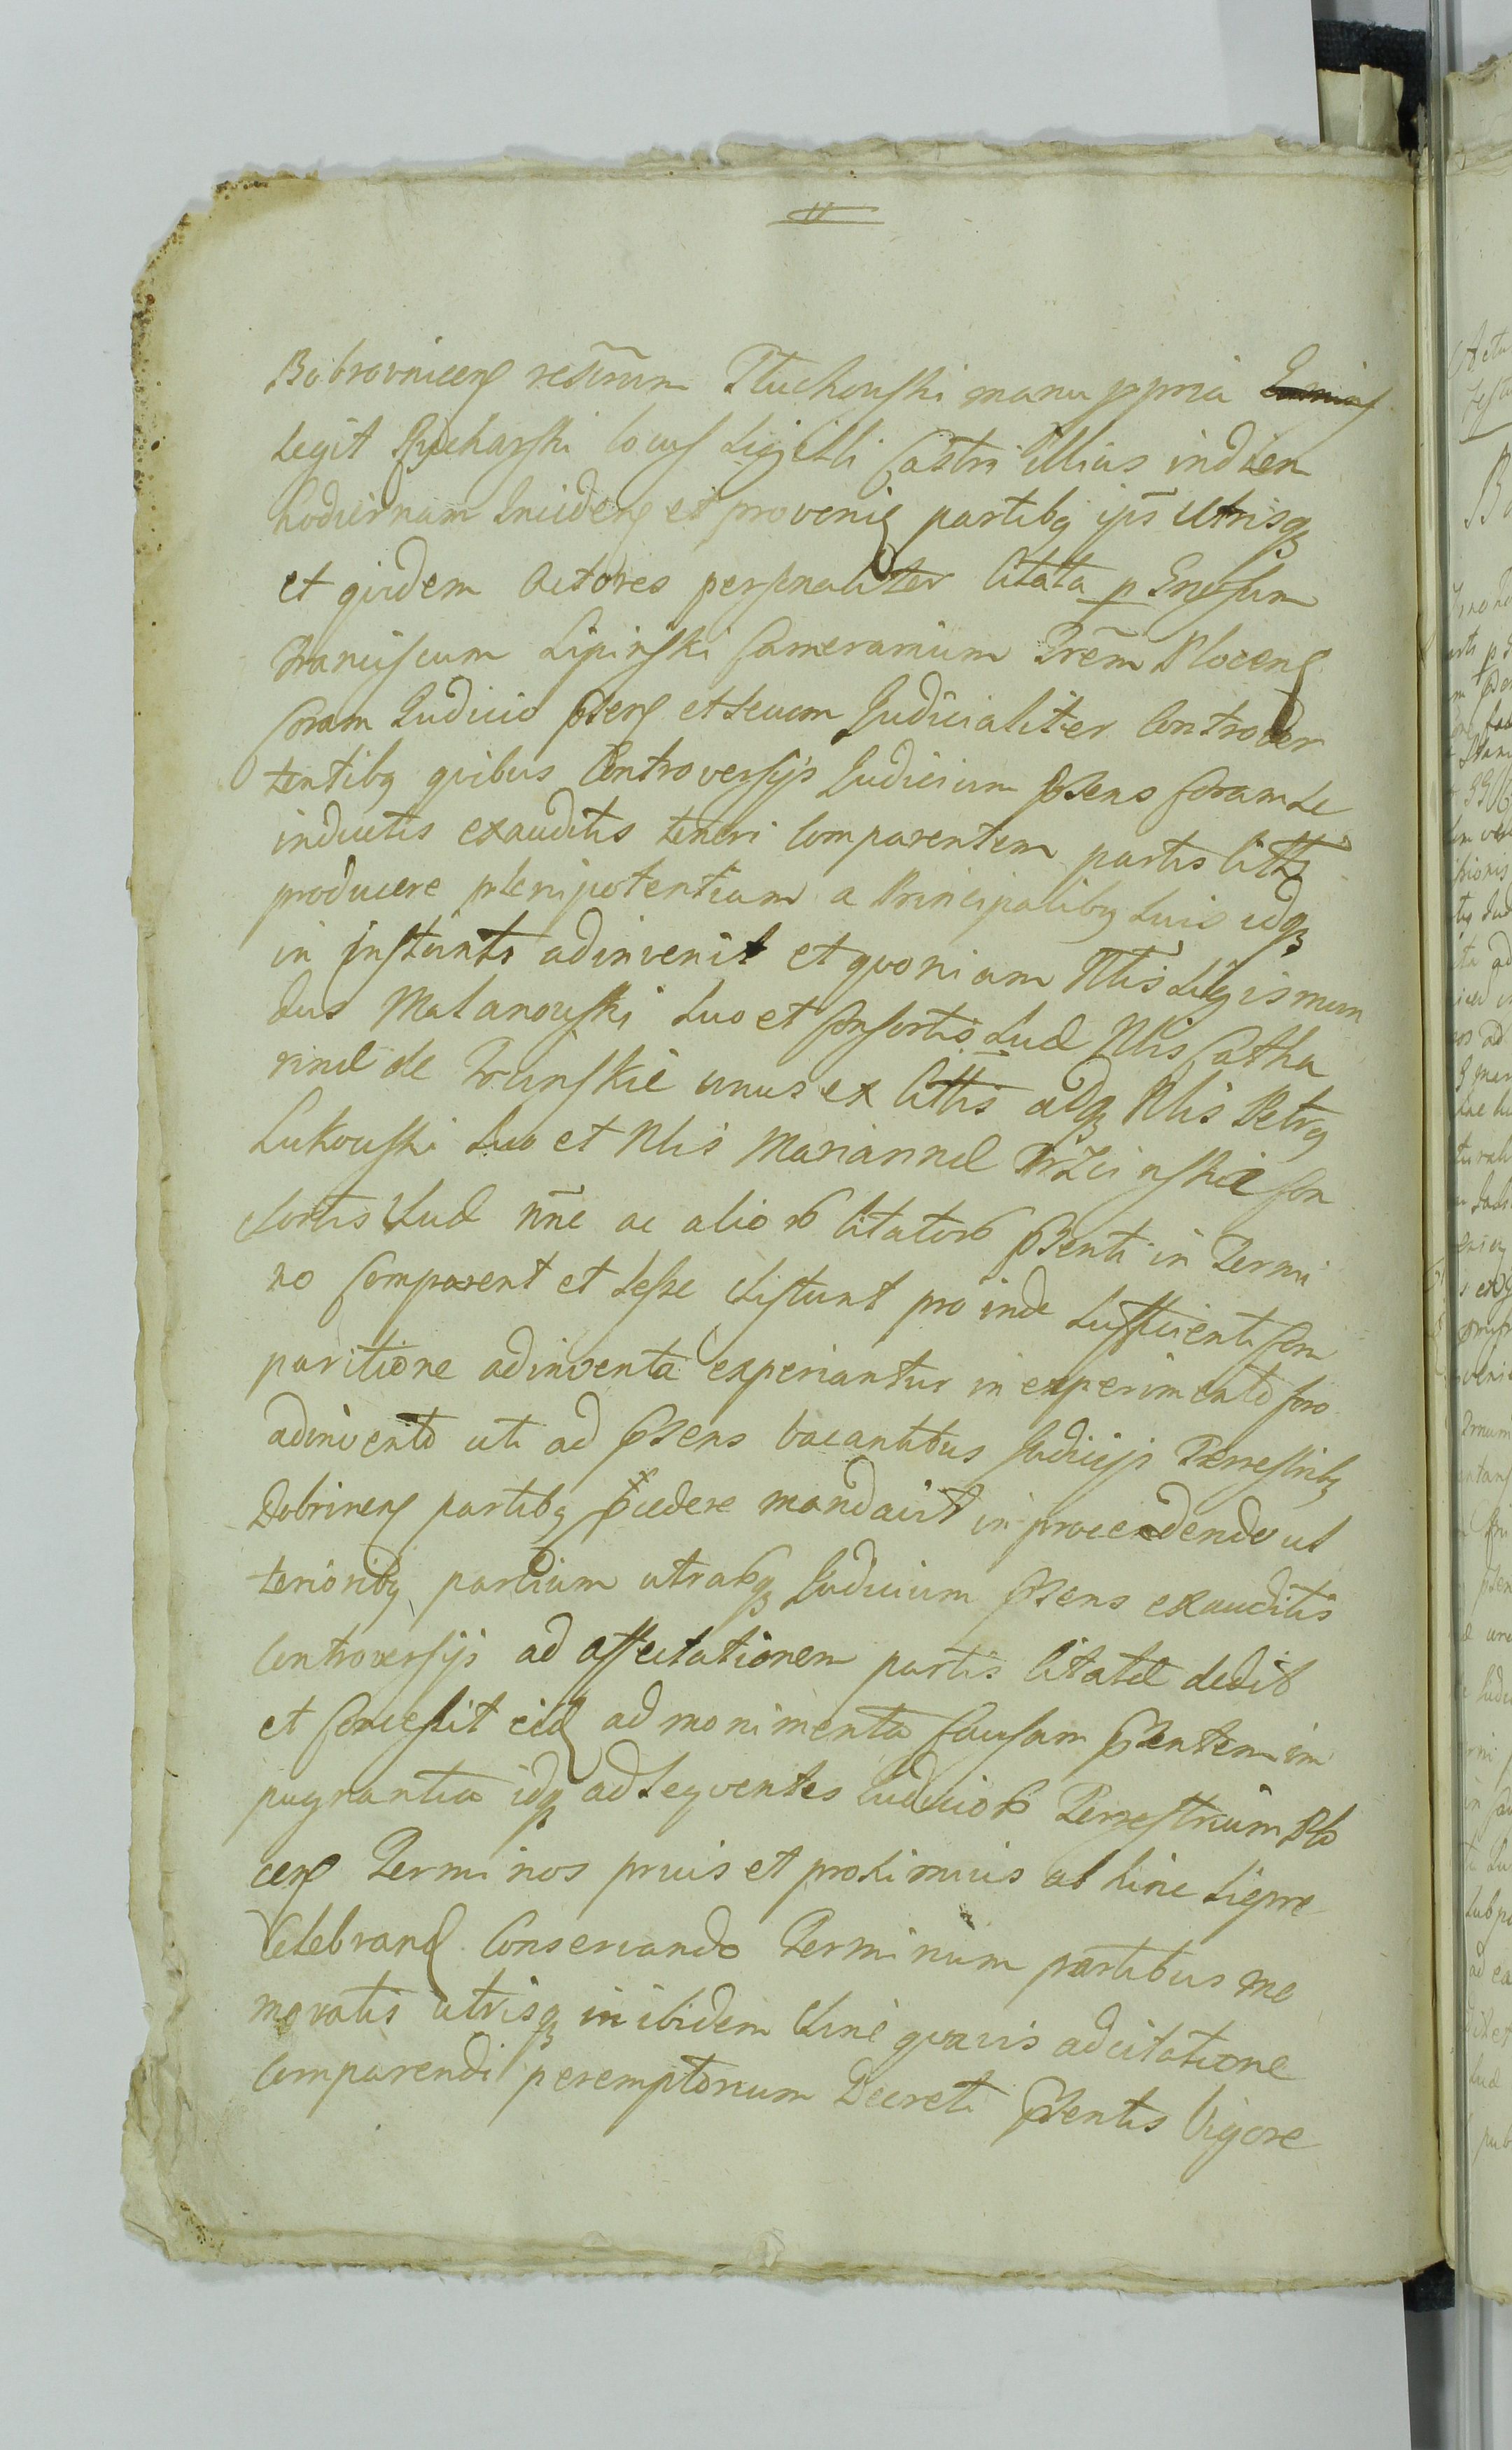 Bobrovnicens restrum Tłuchowski manu ppria
legit Rycharski locus Sigilli Castri illius in dien
hodiernam Inciden et provenien partibq ips Utrisqз
et qvidem Actores personaliter Citata p Gnosum
Franciscum Lipinski Camerarium Trem Plocens
Coram Iudicio psens et secum Judicialiter Controver
tentibq qvibus Controversys Judicium psens Coram se
inductis exauditis teneri Comparentem partis Cittt
producere plenipotentiam a Principalibq suis idqз
in instanti adinvenit et qvoniam Nlis Sigismun
dus Malanowski suo et Consortis suæ Nlis Catha
rinæ de unus ex Cittis adqз Nlis Petrq
Lukowski suo et Nlis Mariannæ Con
sortis suæ nne ac alior Citator psenti in Termi
no Comparent et sese sistunt pro inde sufficienti Com
paritione adinventa experiantur in experimento foro
adinvento uti ad psens vacantibus Judicys Terrestribq
Dobrinens partibq pcedere mandavit in procedendo ul
terioribq partium utrarqз Judicium psens exauditis
Controversys ad affectationem partis Citatæ dedit
et Concessit eid ad monimenta Causam psentem im
pugnantia idqз ad seqventes Iudicior Terrestrium Plo
cens Terminos prius et proximius ab hinc
Celebrand Conservando Terminum partibus me
moratis utrisqз in ibidem sine qvavis adcitatione
Comparendi peremptorium Decreti psentis Vigore